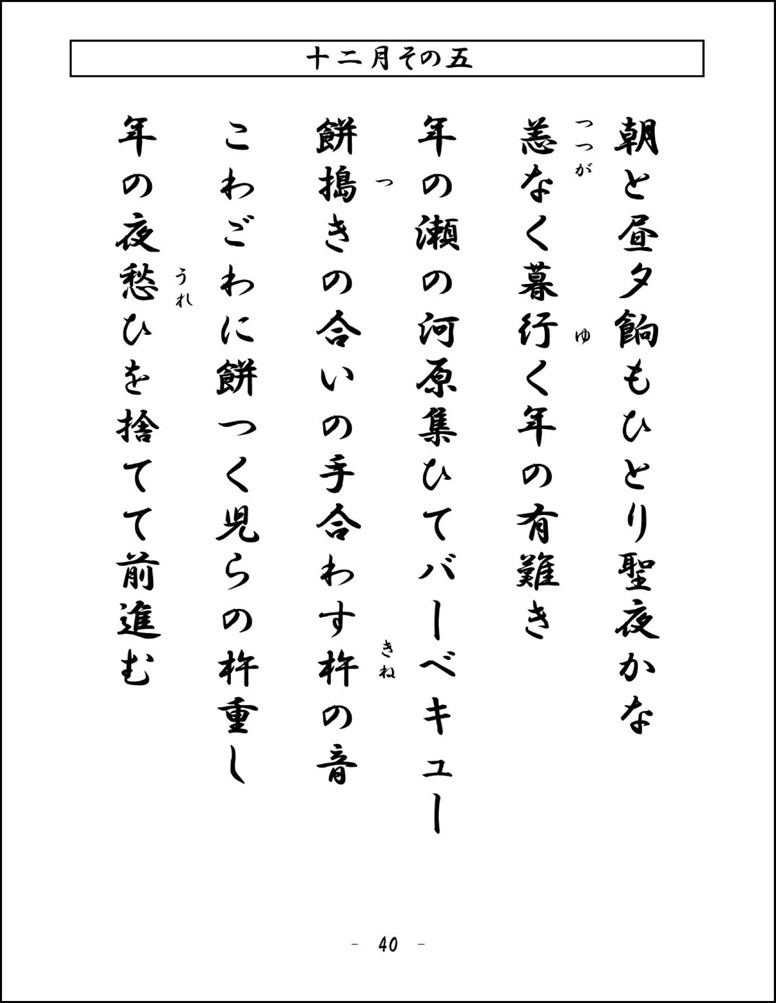 十二月その五
朝と昼夕餉もひとり聖夜かな
つつが ゆ
恙なく暮行く年の有難き
年の瀬の河原集ひてバーベキュー
つ きね
餅搗きの合いの手合わす杵の音
こわごわに餅つく児らの杵重し
うれ
年の夜愁ひを捨てて前進む
- 40 -